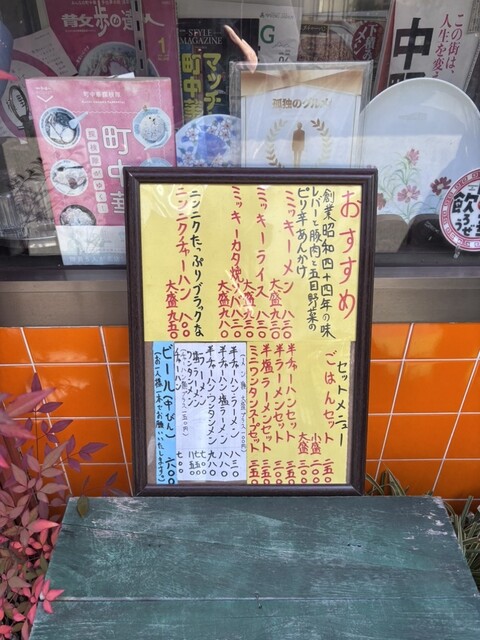 昔
達人
STYLE
MAGAZINE
マップ
町中華
G
この街は、
人生を変え
中野
町中華探検隊
町中華
孤独のグルメ
飲ろうぜ
おすすめ
創業昭和四十四年の味
レバーと豚肉と五目野菜の
ピリ辛あんかけ
ミッキーメン 八三〇
大盛 九三〇
ミッキーライス 八三〇
大盛 九三〇
ミッキーカタ焼ソバ 八三〇
大盛 九八〇
ニンニクたっぷりブラックな
ニンニクチャーハン 八〇〇
大盛 九五〇
セットメニュー
ごはんセット 二五〇
小盛 二〇〇
大盛 三〇〇
半チャーハンセット 三五〇
半ラーメンセット 三五〇
半塩ラーメンセット 三五〇
ミニワンタンスープセット 三五〇
半チャーハンラーメン 八三〇
半チャーハン塩ラーメン 八八〇
半チャーハンワンタンメン 九八〇
塩ラーメン 七五〇
ワンタメン 八五〇
チャーハン 七〇〇
ビール(中びん) 六〇〇
(お一人様二本でお願いいたします)